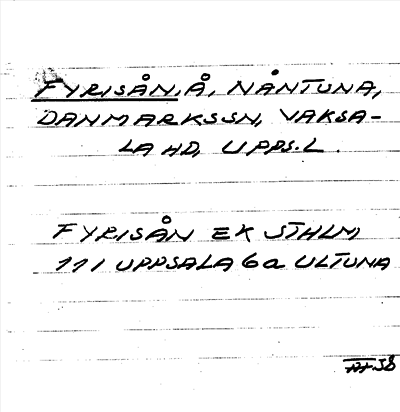 FYRISÅN, Å, NÅNTUNA,
DANMARKSSN, VAKSA-
LA HD, UPPS.L.
FYRISÅN EK STHLM
11 I UPPSALA 6a ULTUNA